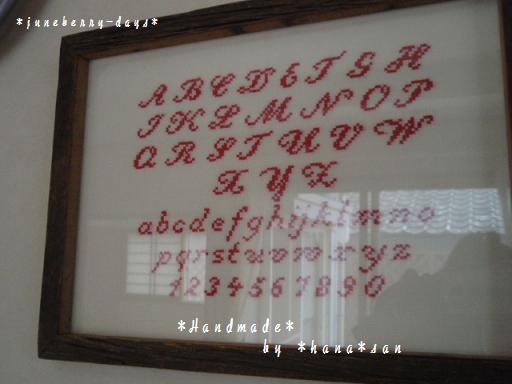 *juneberry-days*
A B C D E F G H
I K L M N O P
Q R S T U V W
X Y Z
a b c d e f g h i j k l m n o
p q r s t u v w x y z
1 2 3 4 5 6 7 8 9 0
*Handmade*
by *hana*san